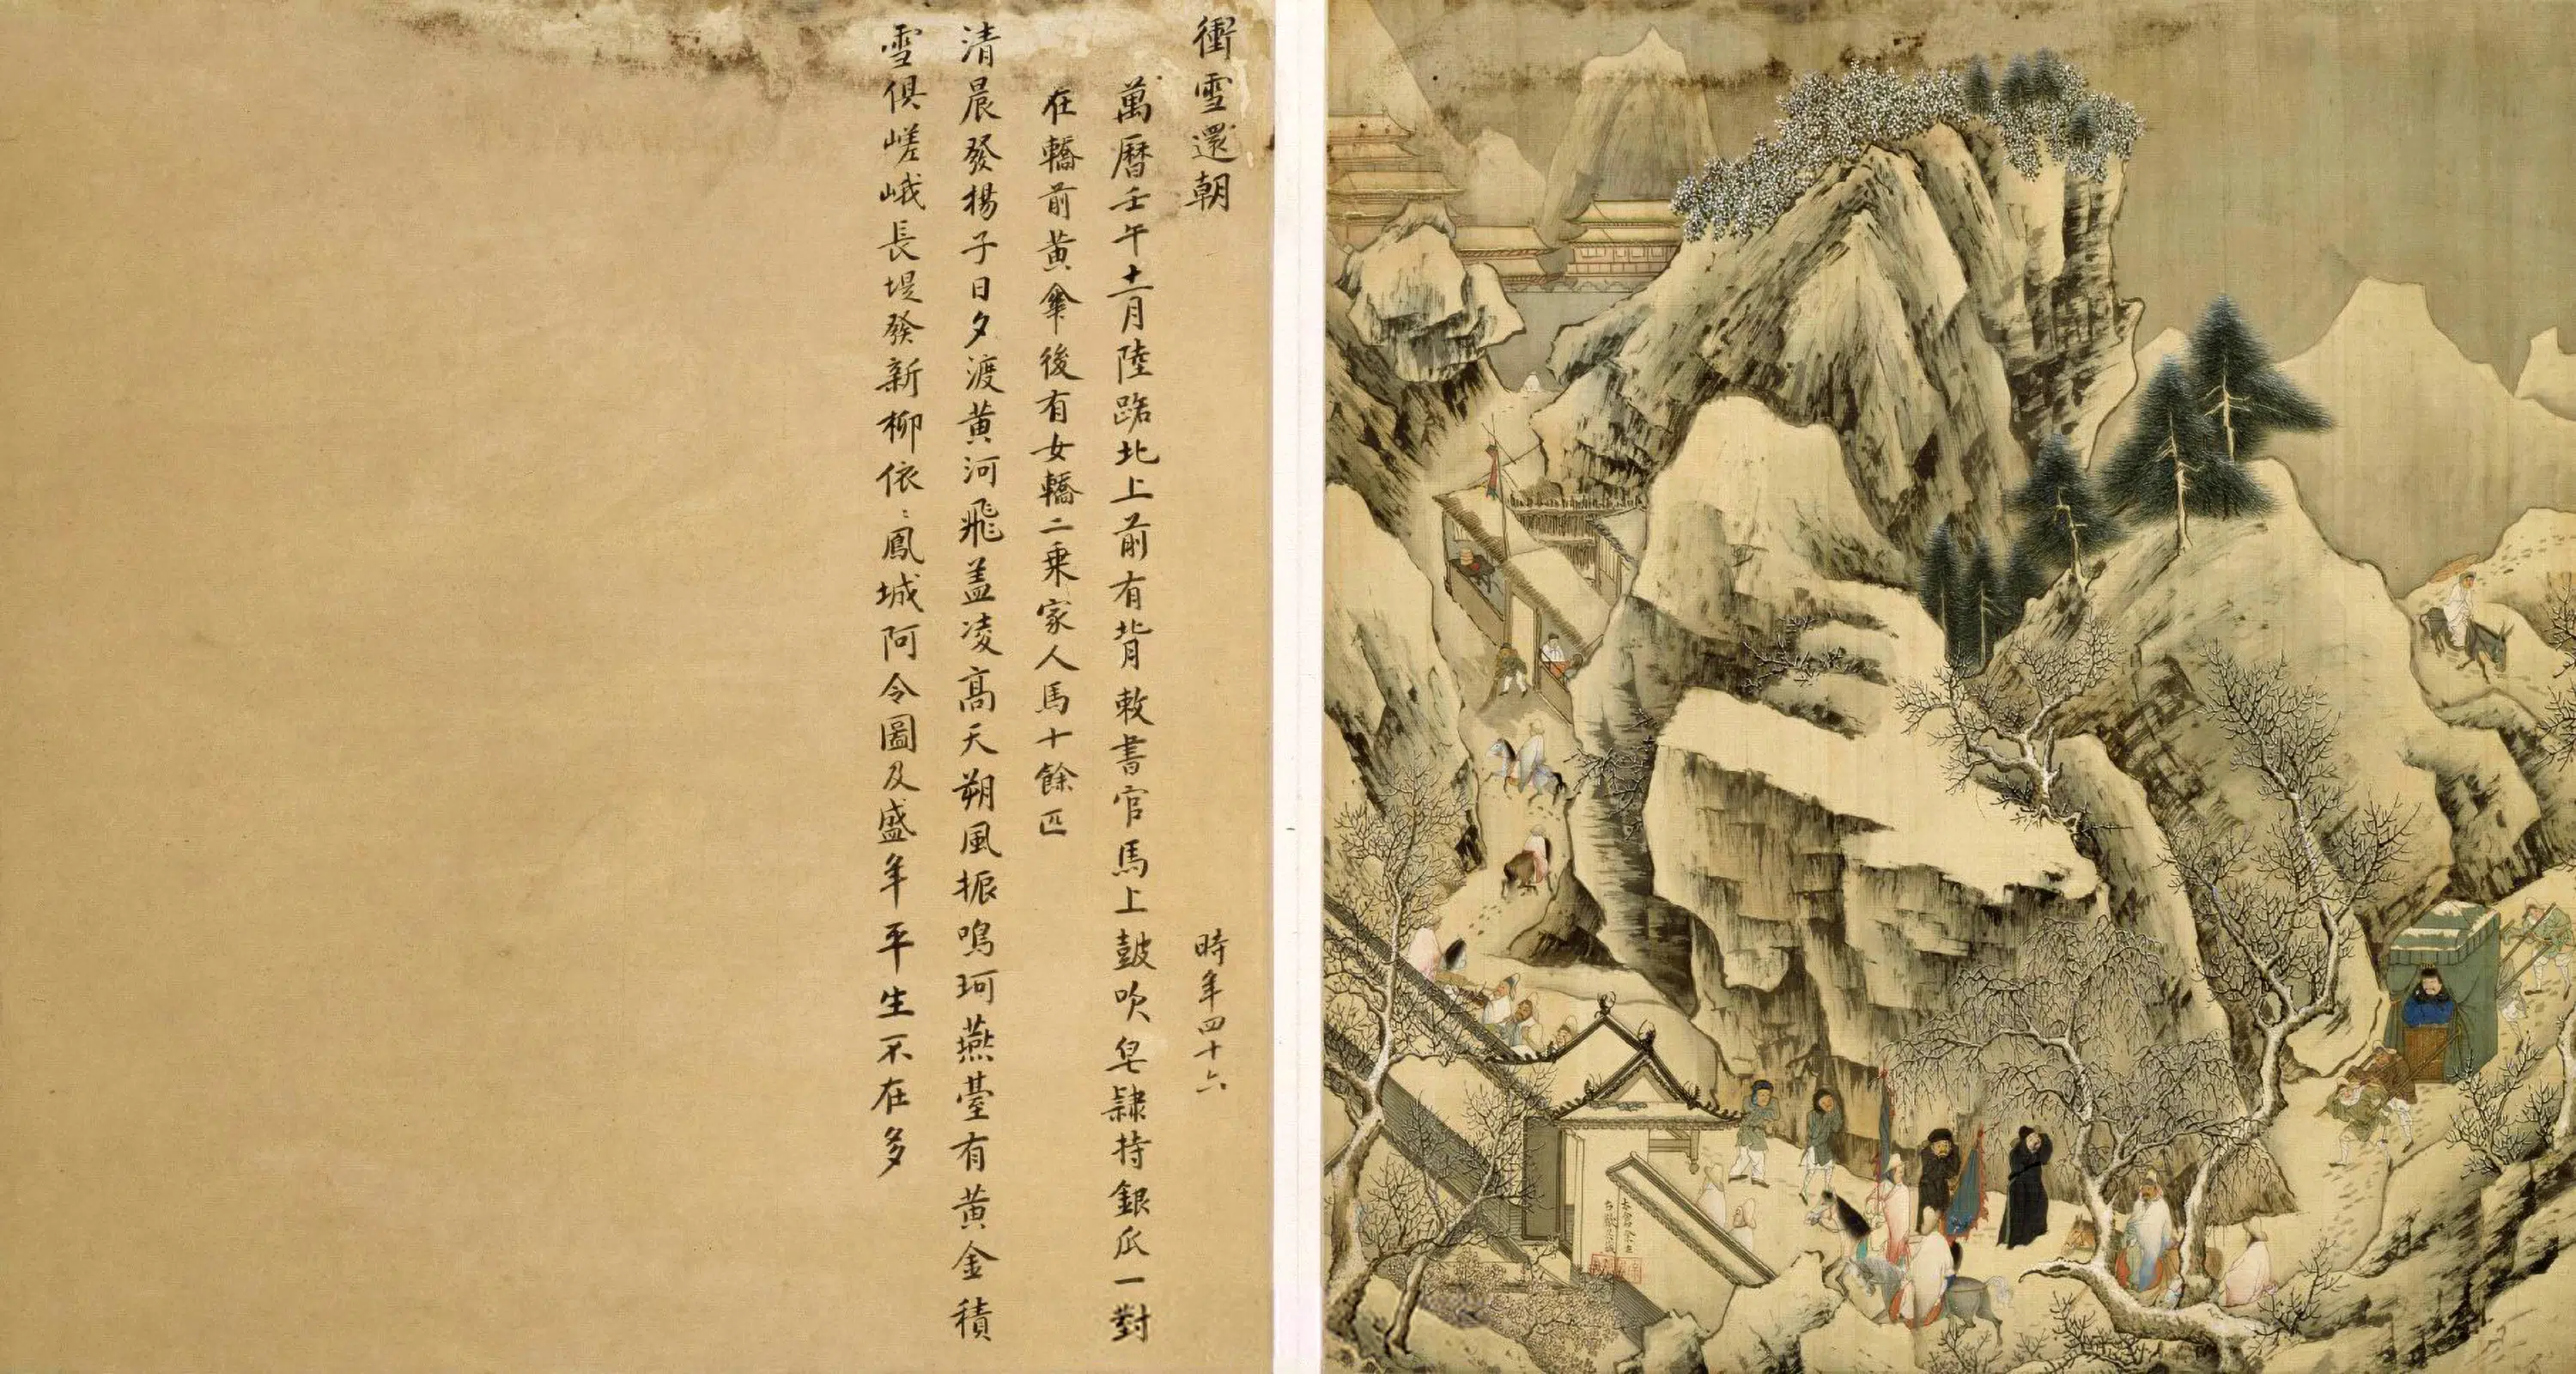 衝雪還朝
時年四十六
萬曆壬午十二月陸路北上前有背敕書官馬上鼓吹皂隸持銀瓜一對
在轎前黃傘後有女轎二乘家人馬十餘匹
清晨發揚子日夕渡黃河飛盖凌高天朔風振鳴珂燕臺有黃金積
雪俱嵯峨長堤發新柳依〻鳳城阿令圖及盛年平生不在多